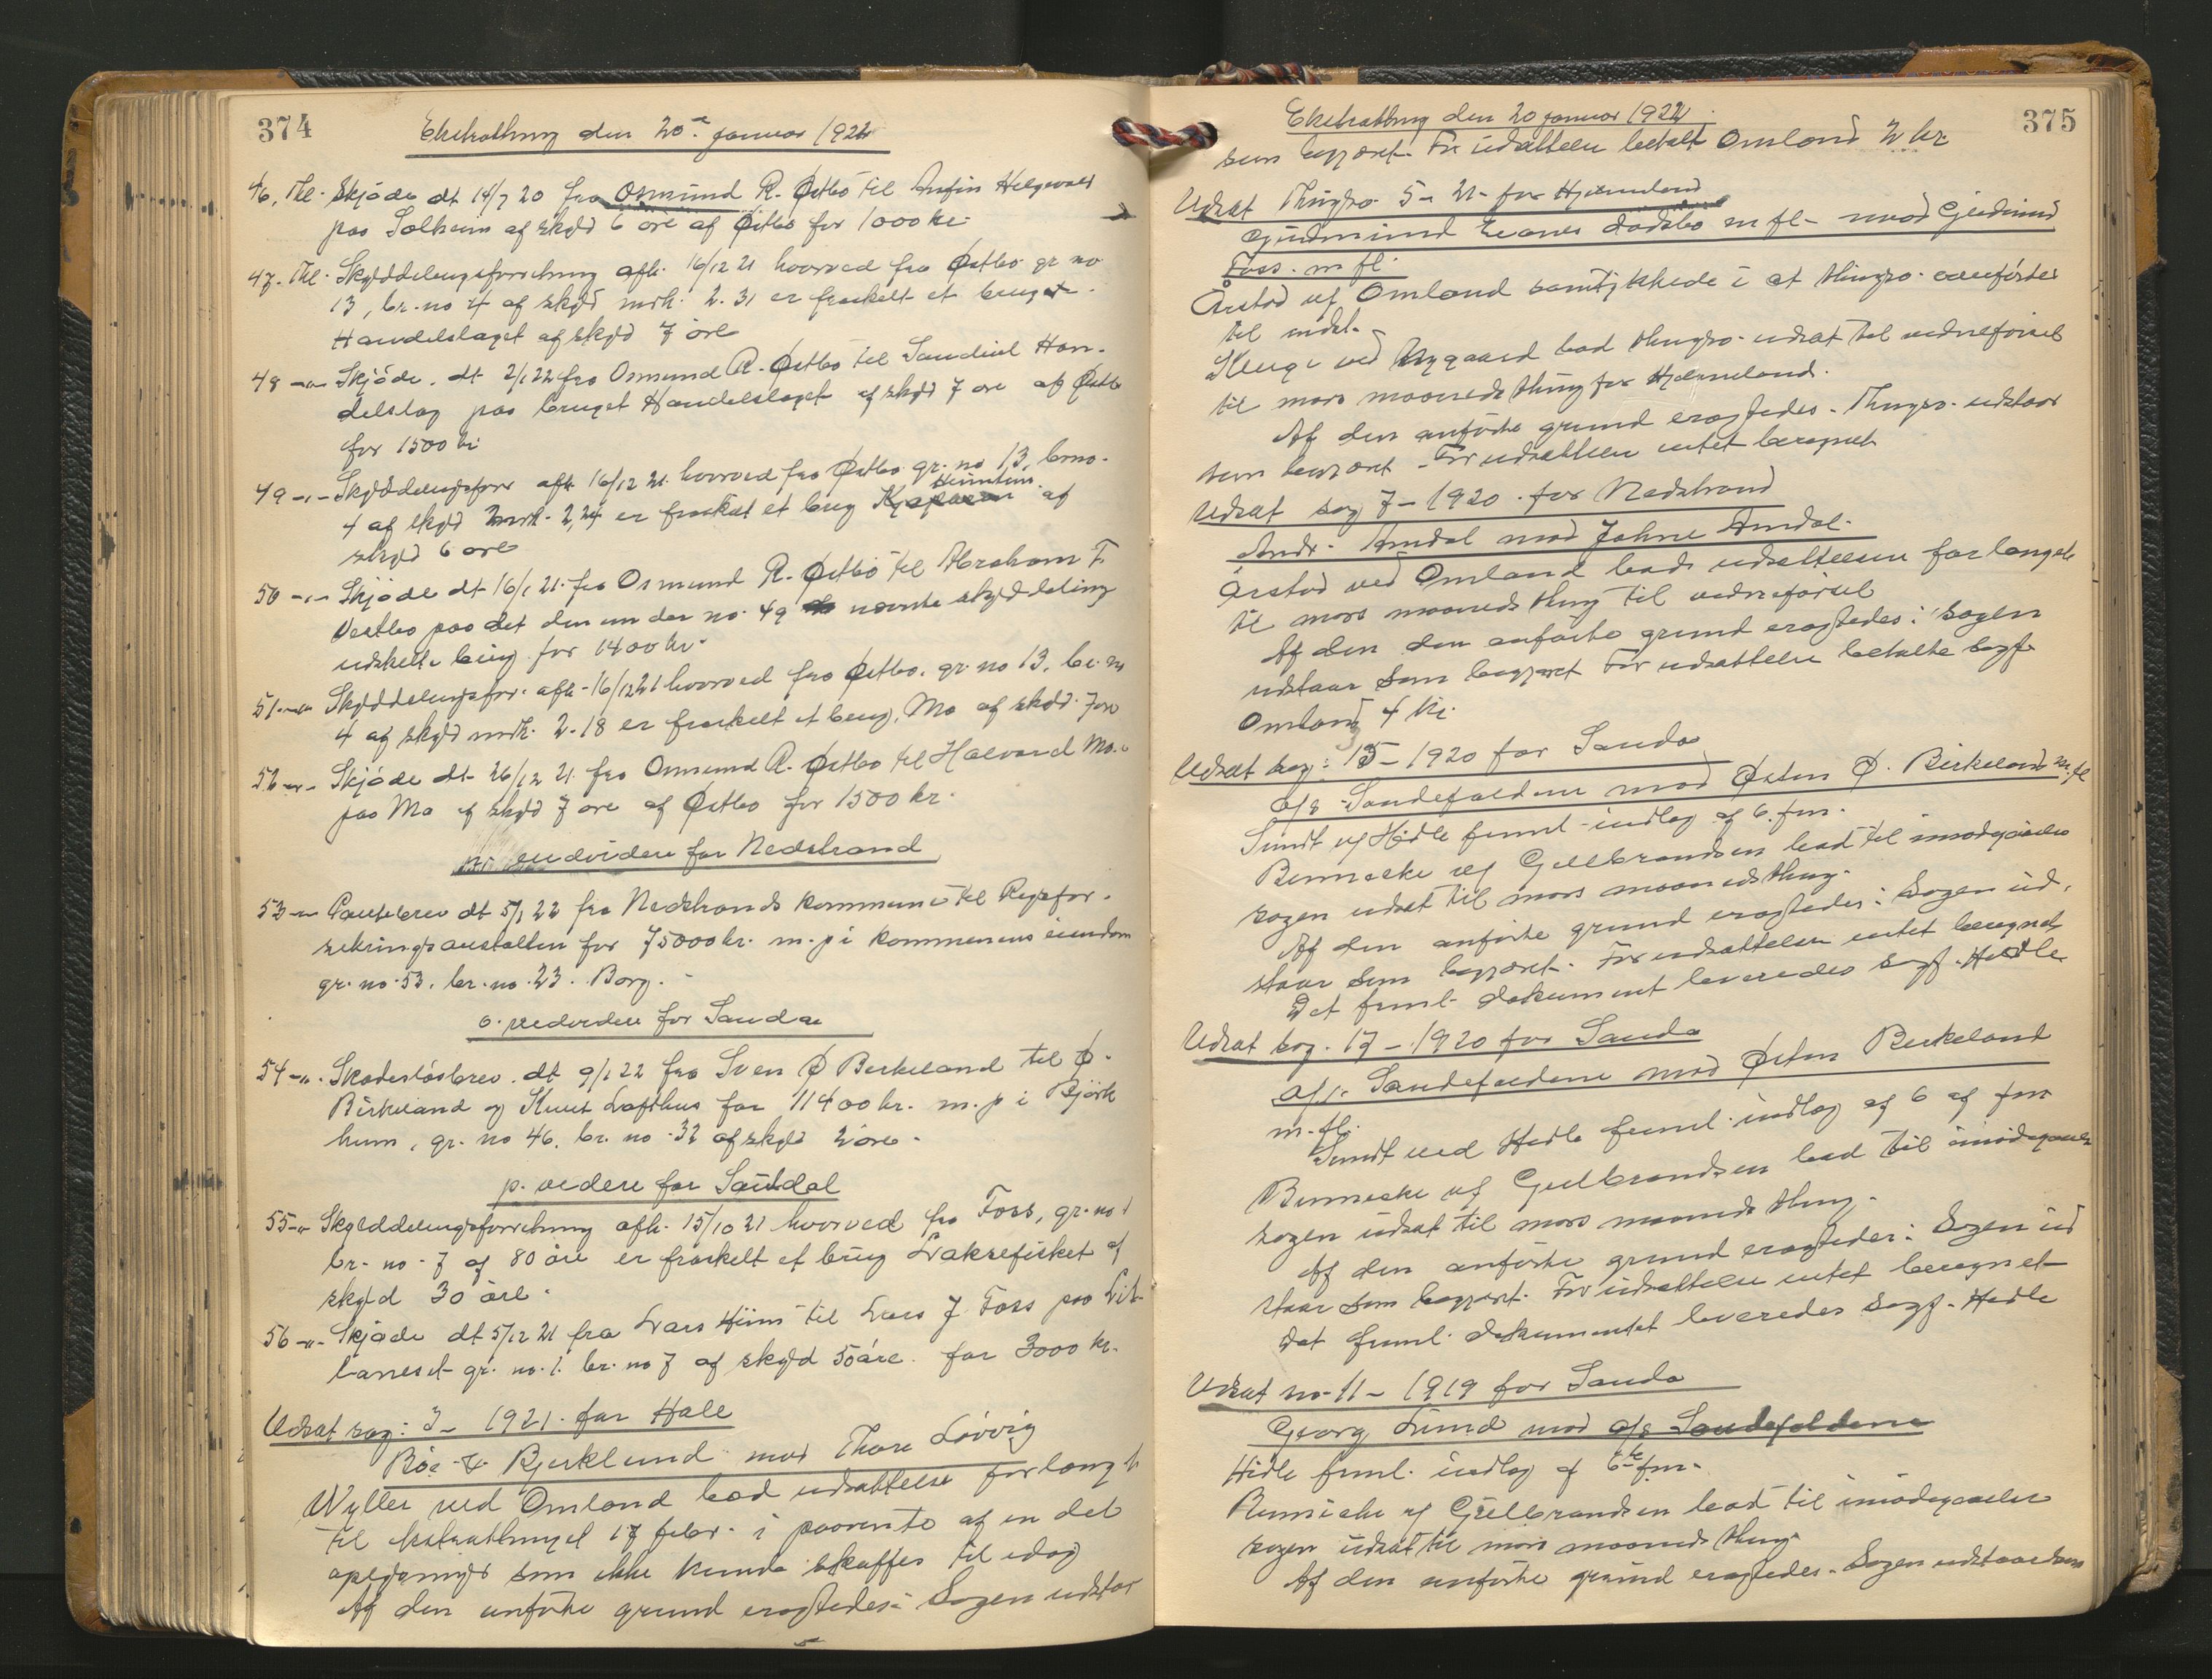 374
Ekstrathing den 20de januar 1922
46. Thl. Skjøde dt 14/7 20 fra Osmund R. Østbø til Anfin Helgevold
paa Solheim af skyld 6 øre af Østbø for 1000 kr.
47. Thl. Skylddelingsforretning afh. 16/12 21 hvorved fra Østbø gr. no.
13, br. no 4 af skyld mrk. 2.31 er fraskilt et bruget
Handelslaget af skyld 7 øre
48 -"- Skjøde. dt 2/1 22 fra Osmund R. Østbø til Sandeid Han-
delslag paa bruget Handelslaget af skyld 7 øre af Østbø
for 1500 kr
49 -"- Skylddelingsforr afh 16/12 21. hvorved fra Østbø gr. no 13, brno.
4 af skyld mrk. 2,24 er fraskilt et brug Heimtun af
skyld 6 øre
50 -"- Skjøde dt 16/1 21. fra Osmund R. Østbø til Abraham T.
Vestbø paa det den under no. 49 nævnte skylddeling
udskilte brug for 1400 kr.
51 -"- Skylddelingsfor. afh. 16/12 21 hvorved fra Østbø, gr. no 13, br. no
4 af skyld mrk. 2.18 er fraskilt et brug, Mo af skyld. 7 øre
52 -"- Skjøde dt 26/12 21. fra Osmund R. Østbø til Halvard Mo.
paa Mo af skyld 7 øre af Østbø for 1500 kr.
endvidere for Nedstrand
53 -"- Pantebrev dt 5/1 22 fra Nedstrands kommune til Rigsfor-
sikringsanstalten for 75000 kr. m. p i kommunens eiendom
gr. no. 53, br. no. 23. Borg.
o. videre for Sauda
54 -"- Skadesløsbrev. dt 9/1 22 fra Sven Ø Birkeland til Ø.
Birkeland og Knut Lofthus for 11400 kr. m. p i Bjørk
hum, gr. no 46, br. no. 32 af skyld 2 øre.
p. videre for Sauldal
55 -"- Skylddelingsforretning afh. 15/10 21 hvorved fra Foss, gr. no 1
br. no. 7 af 80 øre er fraskilt et brug Laksefisket af
skyld 30 øre.
56 -"- Skjøde dt 5/12 21 fra Lars Hiim til Lars J. Foss paa Lit-
laneset gr. no. 1. br. no 7 af skyld 50 øre. for 3000 kr.
Udsat sag: 3 - 1921. for Hale
Bøe & Bjerklund mod Thore Løvvig
Wyller ved Omland bad udsættelse forlangt
til ekstrathinget 17 febr. i paavente af en del
oplysninger som ikke kunde skaffes til idag
Af den anførte grund eragtedes: Sagen udstaar
375
Ekstrathing den 20 januar 1922.
som begjæret. For udsættelsen betalt Omland 2 kr.
Udsat Thingso. 5 - 21 - for Hjelmeland
Gudmund Eeanes dødsbo m fl - mod Gudmund
Foss. m fl.
Årstad vf Omland samtykkede i at thingso. overførtes
til indst.
Kluge ved Nygaard bad thingso. udsat til vidneførsel
til mars maaneds thing for Hjelmeland.
Af den anførte grund eragtedes. Thingso. udstaar
som begjæret. For udsættelsen intet beregnet
Udsat sag 7 - 1920. for Nedstrand
Andr. Amdal mod Johne Amdal.
Årstad ved Omland bad udsættelsen forlænget
til mars maaneds thing til vidneførsel
Af den den anførte grund eragtedes: Sagen
udstaar som begjæret For udsættelse betalte sagf.
Omland 4 kr.
Udsat sag: 15 - 1920 for Sauda
a/s Saudefaldene mod Østen Ø. Birkeland m. fl
Sundt vf Hidle freml. indlæg af 6. fm.
Bennecke vf Gulbrandsen bad til imødegaaelse
sagen udsat til mars maaneds thing.
Af den anførte grund eragtedes: Sagen ud-
staar som begjæret. For udsættelsen intet beregnet
Det freml. dokument leveredes sagf. Hidle
Udsat sag. 17 - 1920 for Sauda
a/s. Saudefaldene mod Østen Birkeland
m. fl.
Sundt ved Hidle freml. indlæg af 6 af fm
Bennecke vf Gulbrandsen bad til imødegaaelse
sagen udsat til mars maaneds thing.
Af den anførte grund eragtedes: Sagen ud
staar som begjæret. For udsættelse intet beregnet
Det freml. dokumentet leveredes sagf. Hidle
Udsat no. 11 - 1919 for Sauda
Georg Lund mod a/s Saudefaldene
Hidle freml. indlæg af 6te fm.
Bennecke vf Gulbrandsen bad til imødegaaelse
sagen udsat til mars maaneds thing
Af den anførte grund eragtedes. Sagen udstaar som